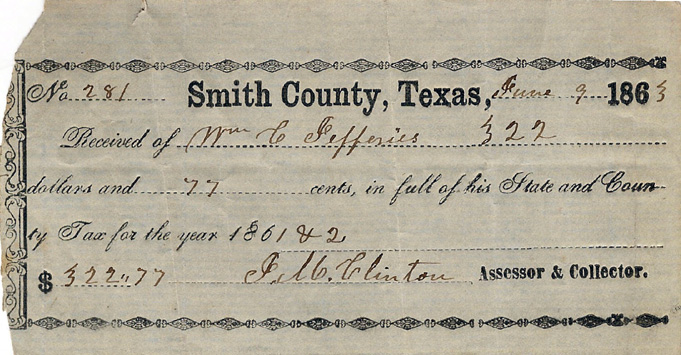 No 281 Smith County, Texas, June 9 1863
Received of Wm C Jefferies 322
dollars and 77 cents, in full of his State and Coun-
ty Tax for the year 1861 & 2
$ 322.77 J. M. Clinton Assessor & Collector.